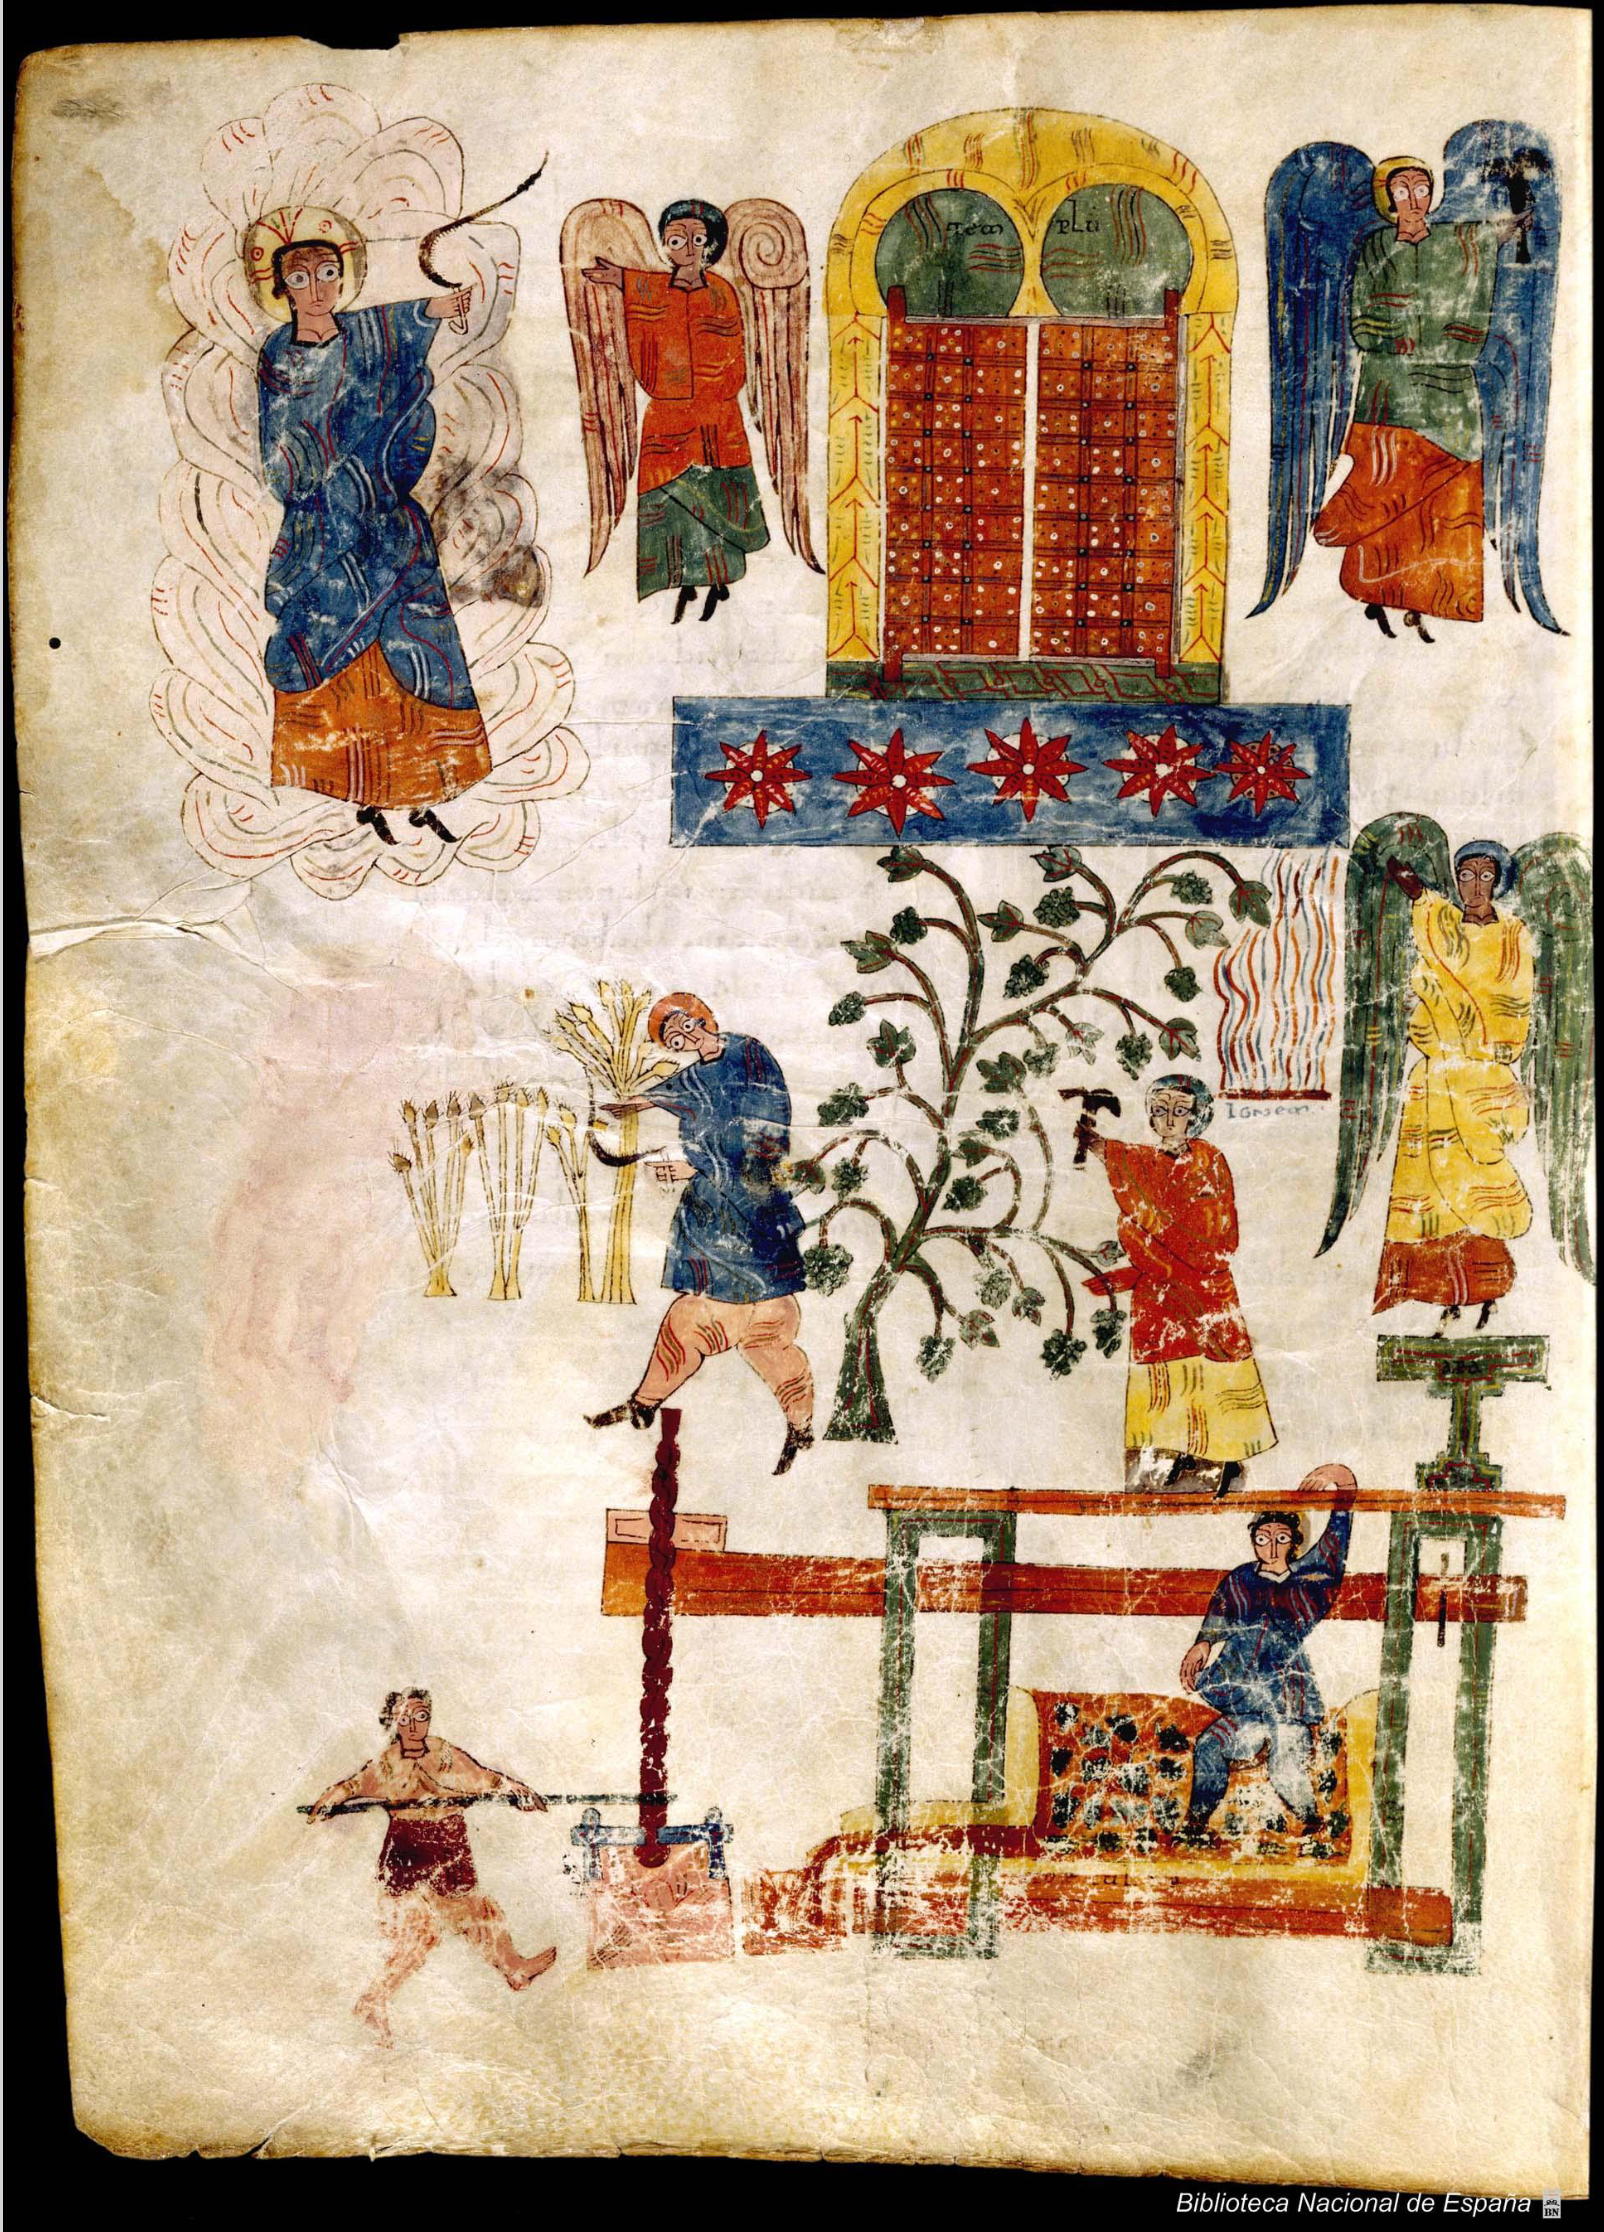 tem plū
Ignem
ara
Biblioteca Nacional de España
BN